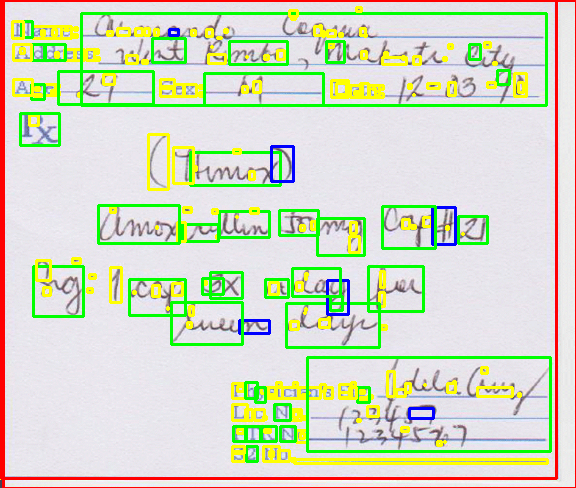 Name: Armando Cagua
Address West Rembo, Makati City
Age 29 Sex M Date 12-03-91
Rx
(Himox)
Amoxicillin 500 mg Cap # 21
Sig: 1 cap 3x a day for
seven days
Physician's Sig. Jdela Cruz
Lic. No. 123457
P.T.R. No. 12345767
S2 No.